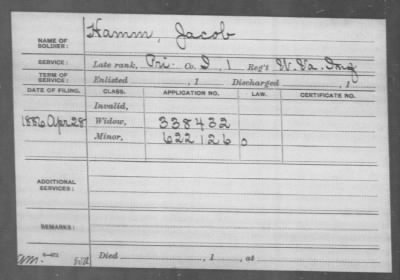 NAME OF SOLDIER: Hamm, Jacob
SERVICE: Late rank, Pri. Co. D, 1 Reg't W. Va. Inf
TERM OF SERVICE: Enlisted , 1 Discharged , 1
DATE OF FILING. CLASS. APPLICATION NO. LAW. CERTIFICATE NO.
Invalid,
1886 Apr 28 Widow, 338432
Minor, 622126 0
ADDITIONAL SERVICES:
REMARKS:
Died , 1 , at